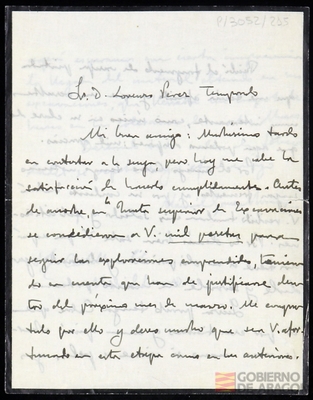 P/3052/203
Sr. D. Lorenzo Perez Temprado
Mi buen amigo: Muchísimo tardo
en contestar a la suya, pero hoy me cabe la
satisfacción de hacerlo cumplidamente. Antes
de anoche, en la Junta superior de Excavaciones
se concedieron a V. mil pesetas para
seguir las exploraciones emprendidas, tenien
do en cuenta que han de justificarse den
tro del próximo mes de marzo. Me congra
tulo por ello y deseo mucho que sea V. afor
tunado en esta etapa como en las anteriores.
GOBIERNO
DE ARAGON